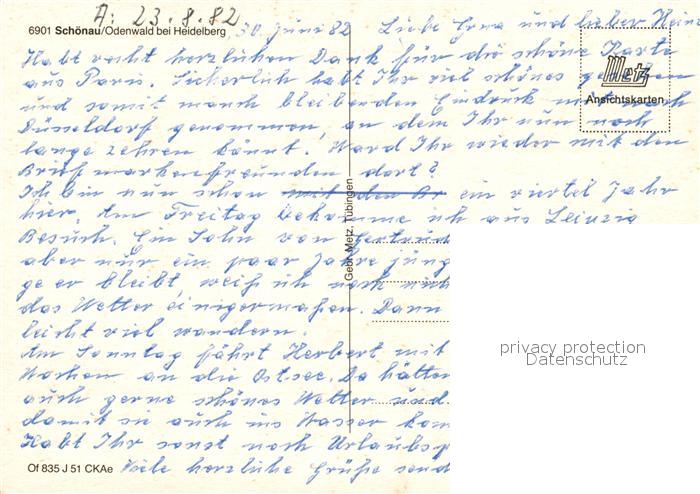 A: 23.8.82
6901 Schönau/Odenwald bei Heidelberg
30. Juni 82 Liebe Erna und lieber Heinz
Habt recht herzlichen Dank für die schöne Karte
aus Paris. Sicherlich habt Ihr viel schönes gesehen
und somit manch bleibenden Eindruck mit nach
Düsseldorf genommen, an dem Ihr nun noch
lange zehren könnt. Ward Ihr wieder mit den
Briefmarkenfreunden dort?
Ich bin nun schon mit den Br ein viertel Jahr
hier. Am Freitag bekomme ich aus Leipzig
Besuch. Ein Sohn von Gertrud
aber nur ein paar Jahre jüng
ge er bleibt, weiß ich noch nich
das Wetter einigermaßen. Dann
leicht viel wandern.
Am Sonntag fährt Herbert mit
Wochen an die Ostsee. Da hätten
auch gerne schönes Wetter und
damit sie auch ins Wasser kön
Habt Ihr sonst noch Urlaubsp
Viele herzliche Grüße send
Of 835 J 51 CKAe
Gebr. Metz, Tübingen
Metz
Ansichtskarten
privacy protection
Datenschutz